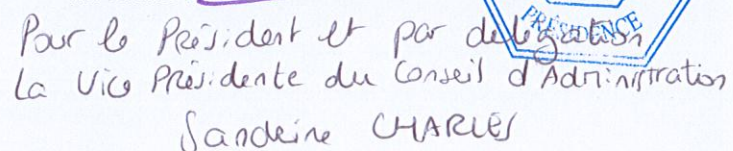 PRÉSIDENCE
Pour le Président et par délégation
La Vice Présidente du Conseil d'Administration
Sandrine CHARLES